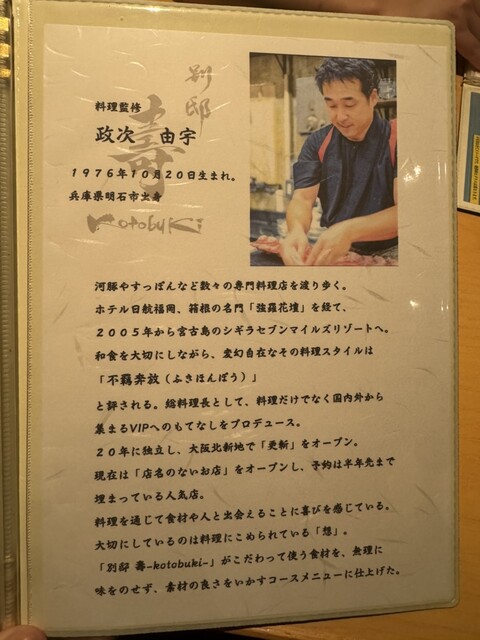 別邸
壽
Kotobuki
料理監修
政次 由宇
1976年10月20日生まれ。
兵庫県明石市出身
河豚やすっぽんなど数々の専門料理店を渡り歩く。
ホテル日航福岡、箱根の名門「強羅花壇」を経て、
2005年から宮古島のシギラセブンマイルズリゾートへ。
和食を大切にしながら、変幻自在なその料理スタイルは
「不羈奔放（ふきほんぽう）」
と評される。総料理長として、料理だけでなく国内外から
集まるVIPへのもてなしをプロデュース。
20年に独立し、大阪北新地で「更新」をオープン。
現在は「店名のないお店」をオープンし、予約は半年先まで
埋まっている人気店。
料理を通じて食材や人と出会えることに喜びを感じている。
大切にしているのは料理にこめられている「想」。
「別邸 壽-kotobuki-」がこだわって使う食材を、無理に
味をのせず、素材の良さをいかすコースメニューに仕上げた。